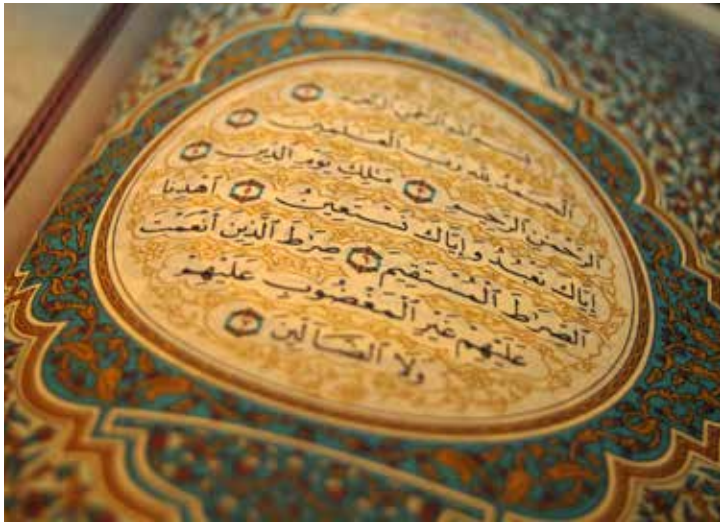 بِسْمِ ٱللَّهِ ٱلرَّحْمَٰنِ ٱلرَّحِيمِ ۝١
ٱلْحَمْدُ لِلَّهِ رَبِّ ٱلْعَٰلَمِينَ ۝٢
ٱلرَّحْمَٰنِ ٱلرَّحِيمِ ۝٣ مَٰلِكِ يَوْمِ ٱلدِّينِ ۝٤
إِيَّاكَ نَعْبُدُ وَإِيَّاكَ نَسْتَعِينُ ۝٥ ٱهْدِنَا
ٱلصِّرَٰطَ ٱلْمُسْتَقِيمَ ۝٦ صِرَٰطَ ٱلَّذِينَ أَنْعَمْتَ
عَلَيْهِمْ غَيْرِ ٱلْمَغْضُوبِ عَلَيْهِمْ
وَلَا ٱلضَّآلِّينَ ۝٧